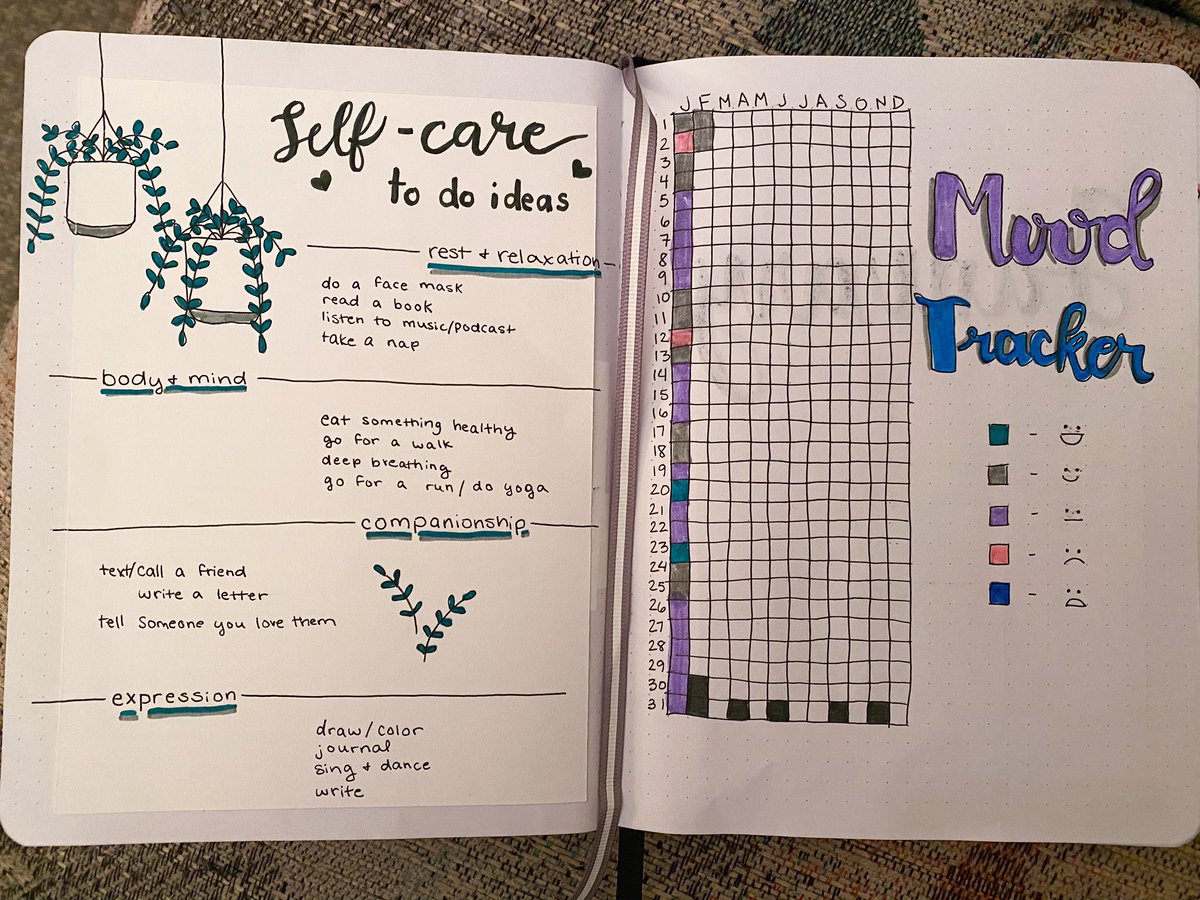 Self-care
to do ideas
rest + relaxation
do a face mask
read a book
listen to music/podcast
take a nap
body + mind
eat something healthy
go for a walk
deep breathing
go for a run/do yoga
companionship
text/call a friend
write a letter
tell someone you love them
expression
draw/color
journal
sing + dance
write
J F M A M J J A S O N D
1
2
3
4
5
6
7
8
9
10
11
12
13
14
15
16
17
18
19
20
21
22
23
24
25
26
27
28
29
30
31
Mood
Tracker
-
-
-
-
-